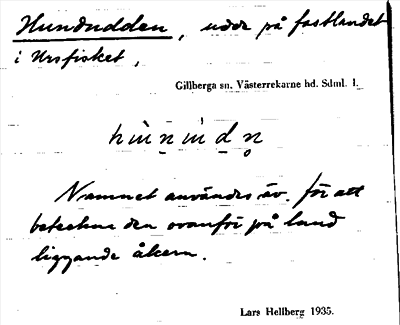 Hundudden, udde på fastlandet
i Ursfisket,
Gillberga sn. Västerrekarne hd. Sdml. l.
Namnet användes äv. för att
beteckna den ovanför på land
liggande åkern.
Lars Hellberg 1935.